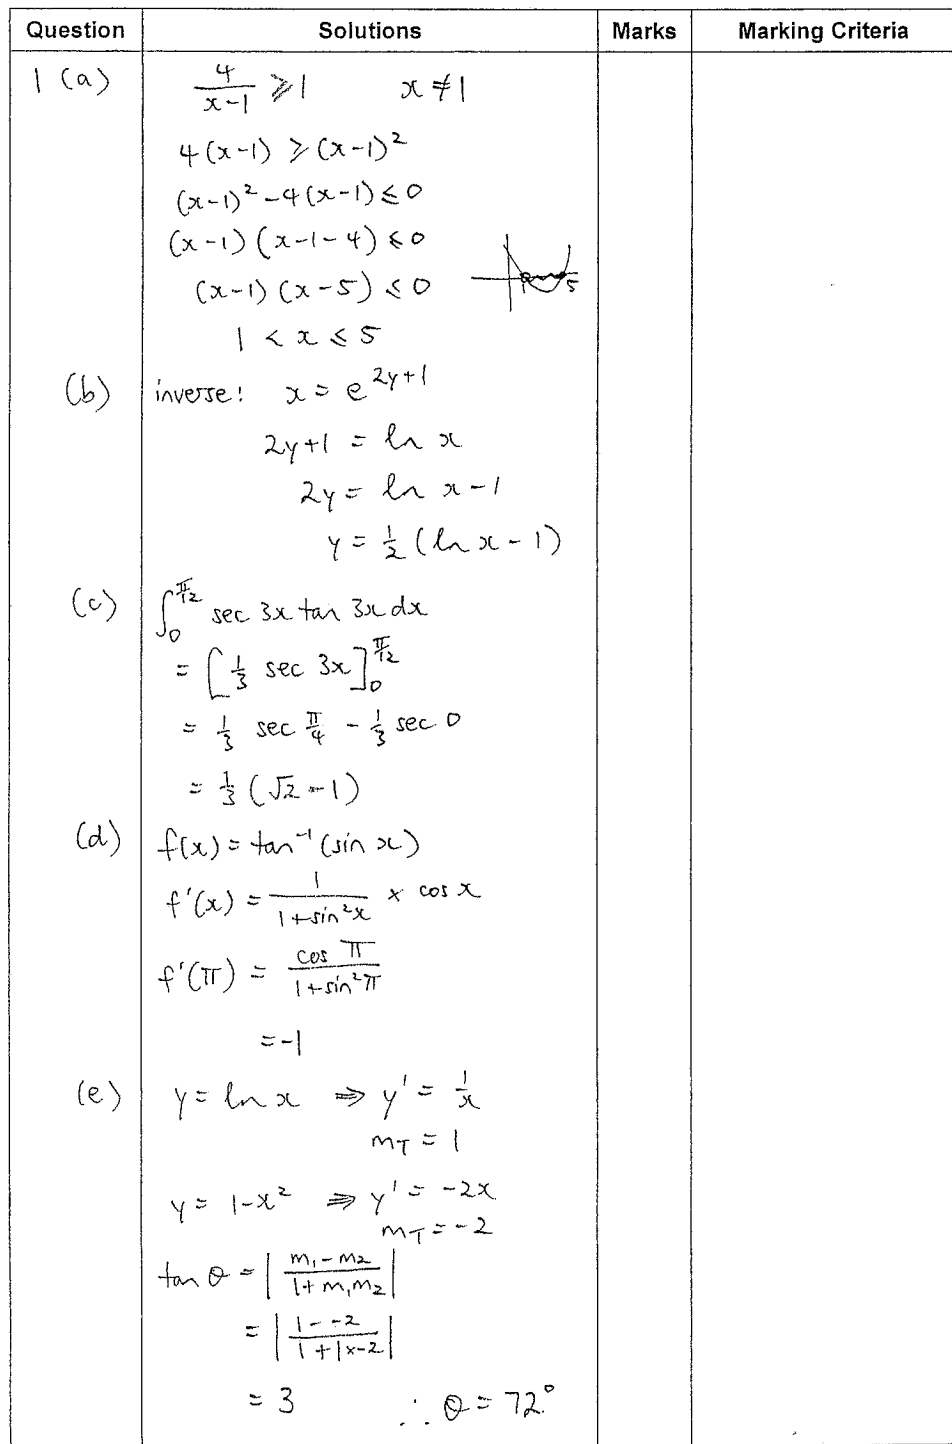 Question Solutions Marks Marking Criteria
1 (a) 4/(x-1) ⩾ 1 x ≠ 1
4(x-1) ⩾ (x-1)²
(x-1)² - 4(x-1) ⩽ 0
(x-1)(x-1-4) ⩽ 0
(x-1)(x-5) ⩽ 0
1 5
1 < x ⩽ 5
(b) inverse: x = e^(2y+1)
2y+1 = ln x
2y = ln x - 1
y = 1/2 (ln x - 1)
(c) ∫₀^(π/12) sec 3x tan 3x dx
= [1/3 sec 3x]₀^(π/12)
= 1/3 sec π/4 - 1/3 sec 0
= 1/3 (√2 - 1)
(d) f(x) = tan⁻¹(sin x)
f'(x) = 1/(1+sin²x) × cos x
f'(π) = cos π/(1+sin²π)
= -1
(e) y = ln x ⇒ y' = 1/x
m_T = 1
y = 1-x² ⇒ y' = -2x
m_T = -2
tan θ = |(m₁-m₂)/(1+m₁m₂)|
= |(1--2)/(1+1×-2)|
= 3 ∴ θ = 72°